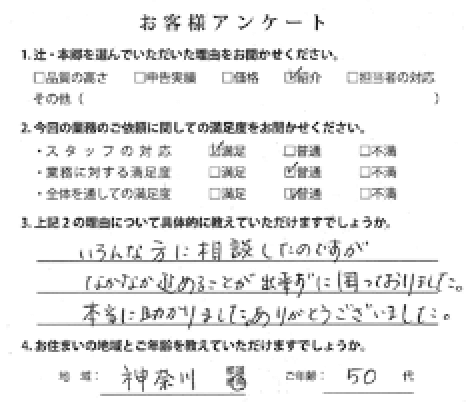 お客様アンケート
1. 辻・本郷を選んでいただいた理由をお聞かせください。
□品質の高さ □申告実績 □価格 ☑紹介 □担当者の対応
その他( )
2. 今回の業務のご依頼に関しての満足度をお聞かせください。
・スタッフの対応 ☑満足 □普通 □不満
・業務に対する満足度 □満足 ☑普通 □不満
・全体を通しての満足度 □満足 ☑普通 □不満
3. 上記2の理由について具体的に教えていただけますでしょうか。
いろんな方に相談したのですが
なかなか進めることが出来ずに困っておりました。
本当に助かりました。ありがとうございました。
4. お住まいの地域とご年齢を教えていただけますでしょうか。
地域: 神奈川 ご年齢: 50 代